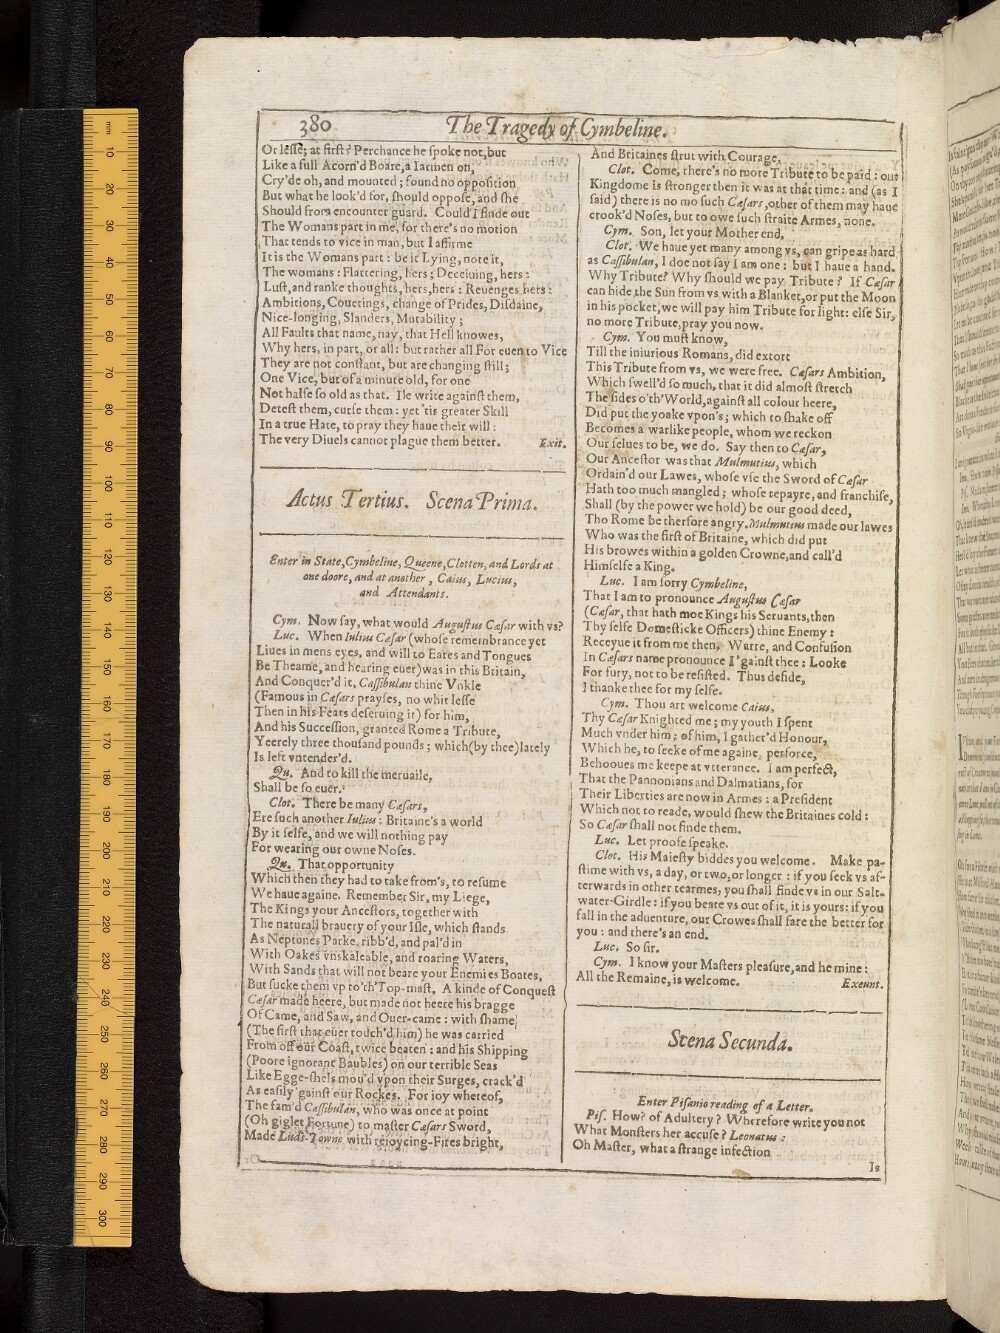 380
The Tragedy of Cymbeline.
Or lesse; at first? Perchance he spoke not, but
Like a full Acorn'd Boare, a Iarmen on,
Cry'de oh, and mounted; found no opposition
But what he look'd for, should oppose, and she
Should from encounter guard. Could I finde out
The Womans part in me, for there's no motion
That tends to vice in man, but I affirme
It is the Womans part: be it Lying, note it,
The womans: Flattering, hers; Deceiuing, hers:
Lust, and ranke thoughts, hers, hers: Reuenges hers:
Ambitions, Couetings, change of Prides, Disdaine,
Nice-longing, Slanders, Mutability;
All Faults that name, nay, that Hell knowes,
Why hers, in part, or all: but rather all For euen to Vice
They are not constant, but are changing still;
One Vice, but of a minute old, for one
Not halfe so old as that. Ile write against them,
Detest them, curse them: yet 'tis greater Skill
In a true Hate, to pray they haue their will:
The very Diuels cannot plague them better. Exit.
Actus Tertius. Scena Prima.
Enter in State, Cymbeline, Queene, Clotten, and Lords at
one doore, and at another, Caius, Lucius,
and Attendants.
Cym. Now say, what would Augustus Cæsar with vs?
Luc. When Iulius Cæsar (whose remembrance yet
Liues in mens eyes, and will to Eares and Tongues
Be Theame, and hearing euer) was in this Britain,
And Conquer'd it, Cassibulan thine Vnkle
(Famous in Cæsars prayses, no whit lesse
Then in his Feats deseruing it) for him,
And his Succession, granted Rome a Tribute,
Yeerely three thousand pounds; which (by thee) lately
Is left vntender'd.
Qu. And to kill the meruaile,
Shall be so euer.
Clot. There be many Cæsars,
Ere such another Iulius: Britaine's a world
By it selfe, and we will nothing pay
For wearing our owne Noses.
Qu. That opportunity
Which then they had to take from's, to resume
We haue againe. Remember Sir, my Liege,
The Kings your Ancestors, together with
The naturall brauery of your Isle, which stands
As Neptunes Parke, ribb'd, and pal'd in
With Oakes vnskaleable, and roaring Waters,
With Sands that will not beare your Enemies Boates,
But sucke them vp to'th'Top-mast. A kinde of Conquest
Cæsar made heere, but made not heere his bragge
Of Came, and Saw, and Ouer-came: with shame
(The first that euer touch'd him) he was carried
From off our Coast, twice beaten: and his Shipping
(Poore ignorant Baubles) on our terrible Seas
Like Egge-shels mou'd vpon their Surges, crack'd
As easily 'gainst our Rockes. For ioy whereof,
The fam'd Cassibulan, who was once at point
(Oh giglet Fortune) to master Cæsars Sword,
Made Luds-Towne with reioycing-Fires bright,
And Britaines strut with Courage.
Clot. Come, there's no more Tribute to be paid: our
Kingdome is stronger then it was at that time: and (as I
said) there is no mo such Cæsars, other of them may haue
crook'd Noses, but to owe such straite Armes, none.
Cym. Son, let your Mother end.
Clot. We haue yet many among vs, can gripe as hard
as Cassibulan, I doe not say I am one: but I haue a hand.
Why Tribute? Why should we pay Tribute? If Cæsar
can hide the Sun from vs with a Blanket, or put the Moon
in his pocket, we will pay him Tribute for light: else Sir,
no more Tribute, pray you now.
Cym. You must know,
Till the iniurious Romans, did extort
This Tribute from vs, we were free. Cæsars Ambition,
Which swell'd so much, that it did almost stretch
The sides o'th'World, against all colour heere,
Did put the yoake vpon's; which to shake off
Becomes a warlike people, whom we reckon
Our selues to be, we do. Say then to Cæsar,
Our Ancestor was that Mulmutius, which
Ordain'd our Lawes, whose vse the Sword of Cæsar
Hath too much mangled; whose repayre, and franchise,
Shall (by the power we hold) be our good deed,
Tho Rome be therfore angry. Mulmutius made our lawes
Who was the first of Britaine, which did put
His browes within a golden Crowne, and call'd
Himselfe a King.
Luc. I am sorry Cymbeline,
That I am to pronounce Augustus Cæsar
(Cæsar, that hath moe Kings his Seruants, then
Thy selfe Domesticke Officers) thine Enemy:
Receyue it from me then. Warre, and Confusion
In Cæsars name pronounce I 'gainst thee: Looke
For fury, not to be resisted. Thus defide,
I thanke thee for my selfe.
Cym. Thou art welcome Caius,
Thy Cæsar Knighted me; my youth I spent
Much vnder him; of him, I gather'd Honour,
Which he, to seeke of me againe, perforce,
Behooues me keepe at vtterance. I am perfect,
That the Pannonians and Dalmatians, for
Their Liberties are now in Armes: a President
Which not to reade, would shew the Britaines cold:
So Cæsar shall not finde them.
Luc. Let proofe speake.
Clot. His Maiesty biddes you welcome. Make pa-
stime with vs, a day, or two, or longer: if you seek vs af-
terwards in other tearmes, you shall finde vs in our Salt-
water-Girdle: if you beate vs out of it, it is yours: if you
fall in the aduenture, our Crowes shall fare the better for
you: and there's an end.
Luc. So sir.
Cym. I know your Masters pleasure, and he mine:
All the Remaine, is welcome. Exeunt.
Scena Secunda.
Enter Pisanio reading of a Letter.
Pis. How? of Adultery? Wherefore write you not
What Monsters her accuse? Leonatus:
Oh Master, what a strange infection
Is
mm 10 20 30 40 50 60 70 80 90 100 110 120 130 140 150 160 170 180 190 200 210 220 230 240 250 260 270 280 290 300